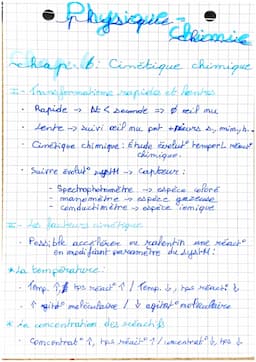 Physique-
Chimie
Chap 6: Cinétique chimique
I- Transformations rapides et lentes
• Rapide → Δt < seconde => ∅ œil nu
• Lente → suivi œil nu pdt +ieurs s, min, h..
• Cinétique chimique: Étude évolut° temporl. réact°
chimique.
• Suivre évolut° systM → Capteur:
- Spectrophotomètre → espèce coloré
- manomètre → espèce gazeuse
- conductimètre → espèce ionique
II- Les facteurs cinétique
• Possible accélérer ou ralentir une réact°
en modifiant paramètre du systM:
* La température:
• Temp. ↑, tps réact° ↓ / Temp. ↓, tps réact° ↑
• ↑ agitat° moléculaire / ↓ agitat° moléculaire
* La concentration des réactifs
• Concentrat° ↑, tps réact° ↓ / concentrat° ↓, tps ↑